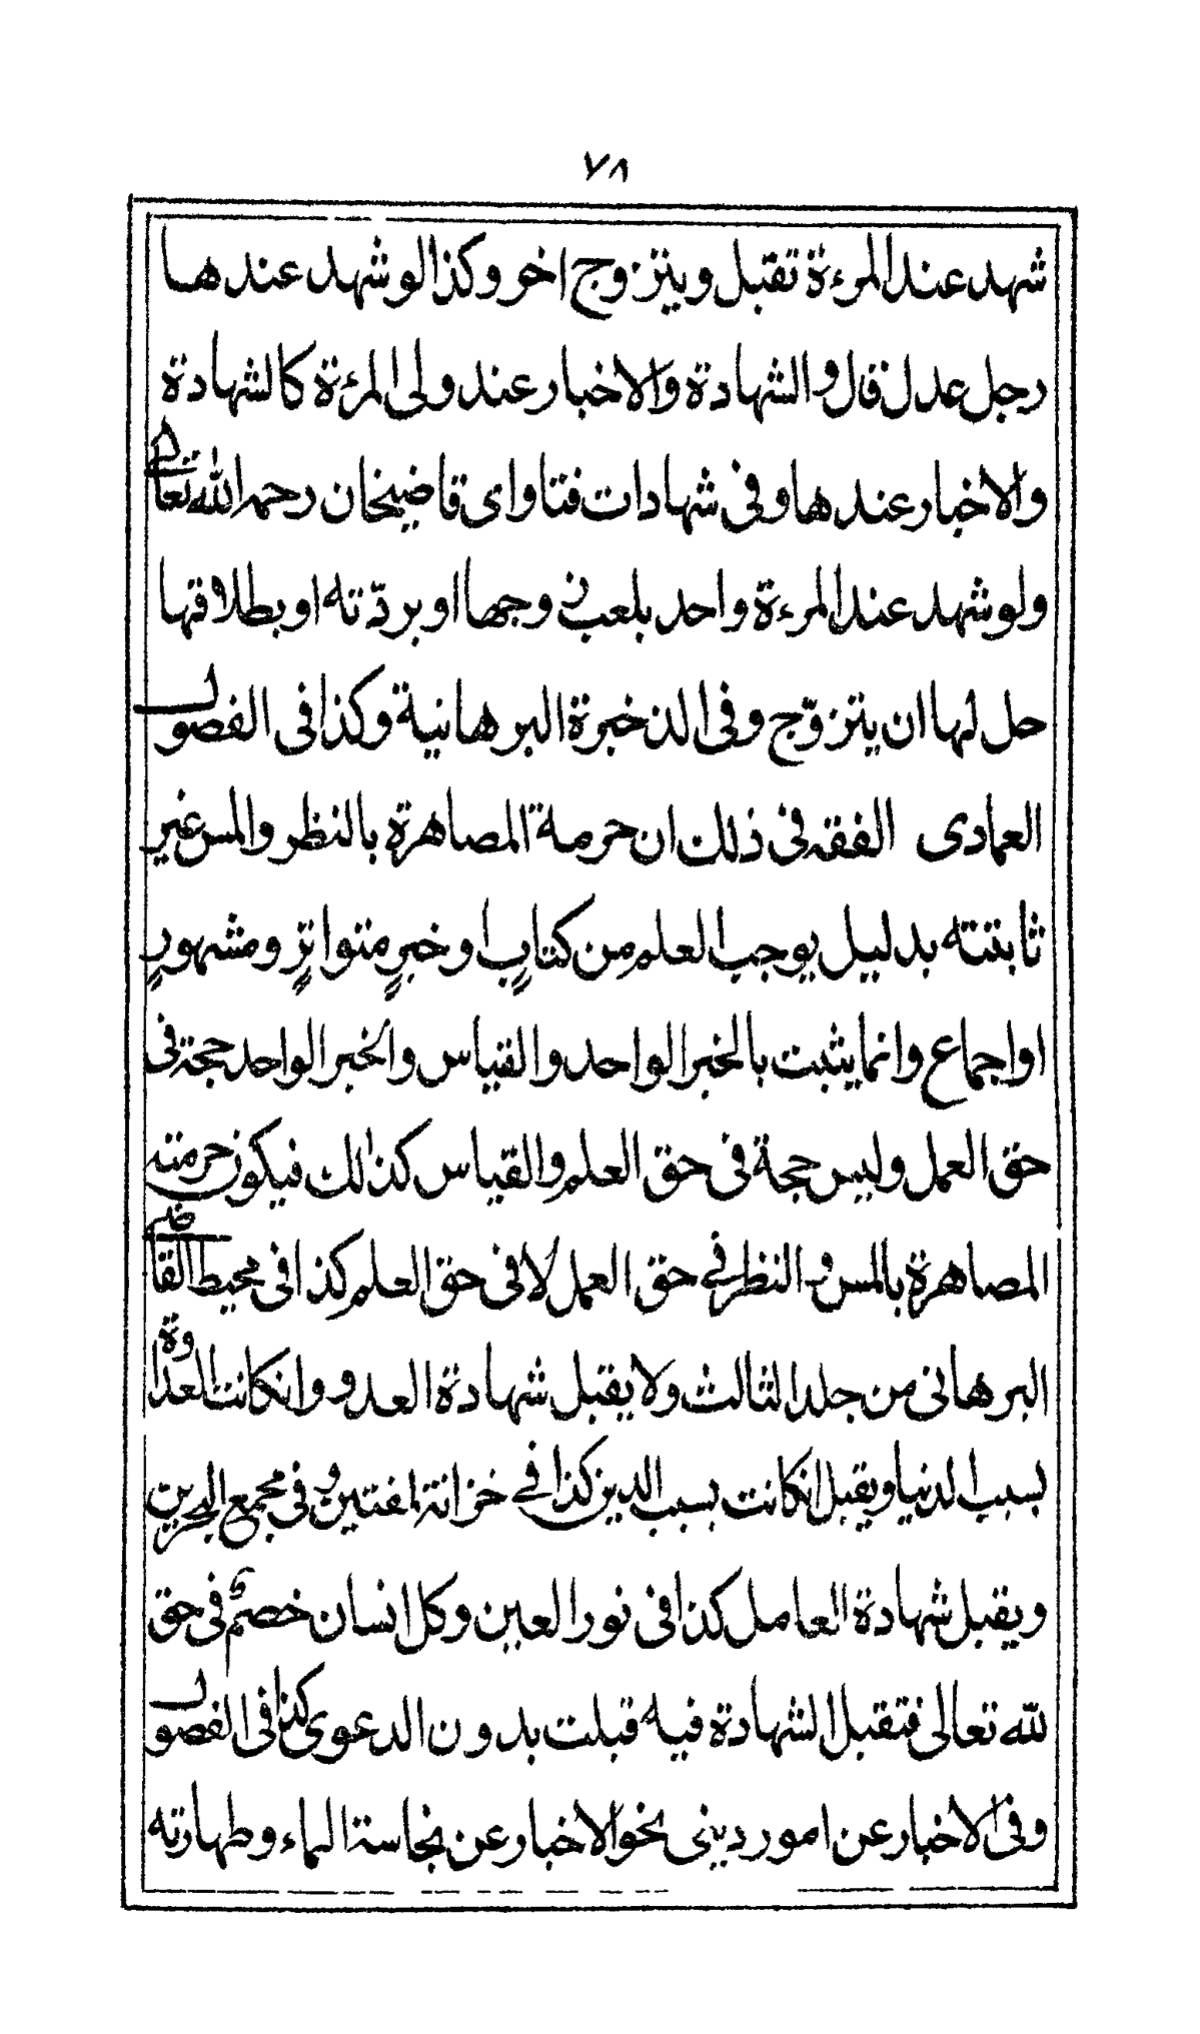 ٧٨
شهد عند المرءة تقبل ويتزوج اخر وكذا لو شهد عندها
رجل عدل قال والشهادة والاخبار عند ولى المرءة كالشهادة
والاخبار عندها وفى شهادات فتاواى قاضيخان رحمه الله تعالى
ولو شهد عند المرءة واحد بلعب زوجها او بردّته او بطلاقها
حل لها ان يتزوّج وفى الذخيرة البرهانية وكذا فى الفصول
العمادى الفقه فى ذلك ان حرمة المصاهرة بالنظر والمس غير
ثابتته بدليل يوجب العلم من كتابٍ او خبرٍ متواترٍ ومشهورٍ
او اجماع وانما يثبت بالخبر الواحد والقياس والخبر الواحد حجة فى
حق العمل وليس حجة فى حق العلم والقياس كذالك فيكون حرمته
المصاهرة بالمس والنظر فى حق العمل لا فى حق العلم كذا فى محيط القاضى
البرهانى من جلد الثالث ولا يقبل شهادة العدو وانكانت العداوة
بسبب الدنيا ويقبل انكانت بسبب الدين كذا فى خزانة لمفتين وفى مجمع البحرين
ويقبل شهادة العامل كذا فى نور العين وكل انسان خصم فى حق
لله تعالى فتقبل الشهادة فيه قبلت بدون الدعوى كذا فى الفصول
وفى الاخبار عن امور دينى نحو الاخبار عن نجاسة الماء وطهارته